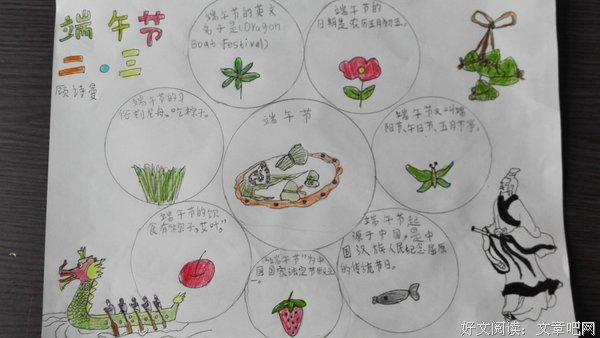 端午节
二.三
顾诗曼
端午节的英文
名字是(Dragon
Boat Festival)
端午节的
日期是农历五月初五。
端午节的习
龙舟。吃粽子。
端午节
端午节又叫端
阳节、午日节、五月节等。
端午节的饮
食有粽子,艾叶"
"端午节"为中
国国家法定节假日之
一。
端午节起
源于中国,是中
国汉族人民纪念屈原
的传统节日。
好文阅读:文章吧网